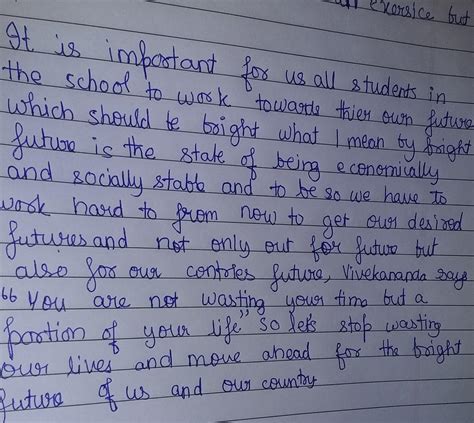 exersice but
It is important for us all students in
the school to work towards thier own future
which should be bright what I mean by bright
future is the state of being economically
and socially stable and to be so we have to
work hard to from now to get our desired
futures and not only out for future but
also for our contries future, Vivekananda says
"You are not wasting your time but a
portion of your life" so let's stop wasting
our lives and move ahead for the bright
future of us and our country